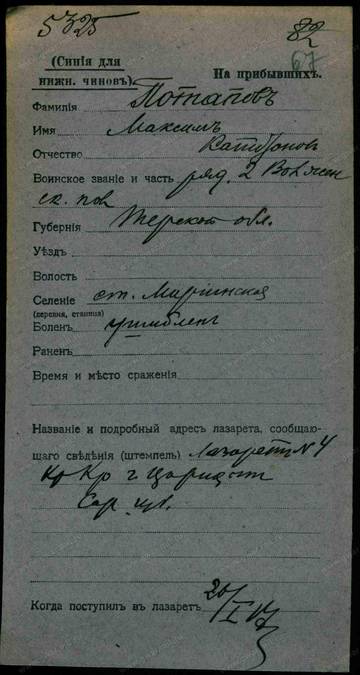 5325 82
(Синія для 67
нижн. чиновъ). На прибывшихъ.
Фамилія Потаповъ
Имя Максимъ
Отчество
Воинское званіе и часть ряд. 2 Волжен
ск. пол
Губернія Терской обл.
Уѣздъ
Волость
Селеніе ст. Маріинская
(деревня, станица)
Боленъ ушибленъ
Раненъ
Время и мѣсто сраженія
Названіе и подробный адресъ лазарета, сообщаю-
щаго свѣдѣнія (штемпель) Лазаретъ № 4
Кр Кр г Царицынъ
Сар.
Когда поступилъ въ лазаретъ 20/I 17